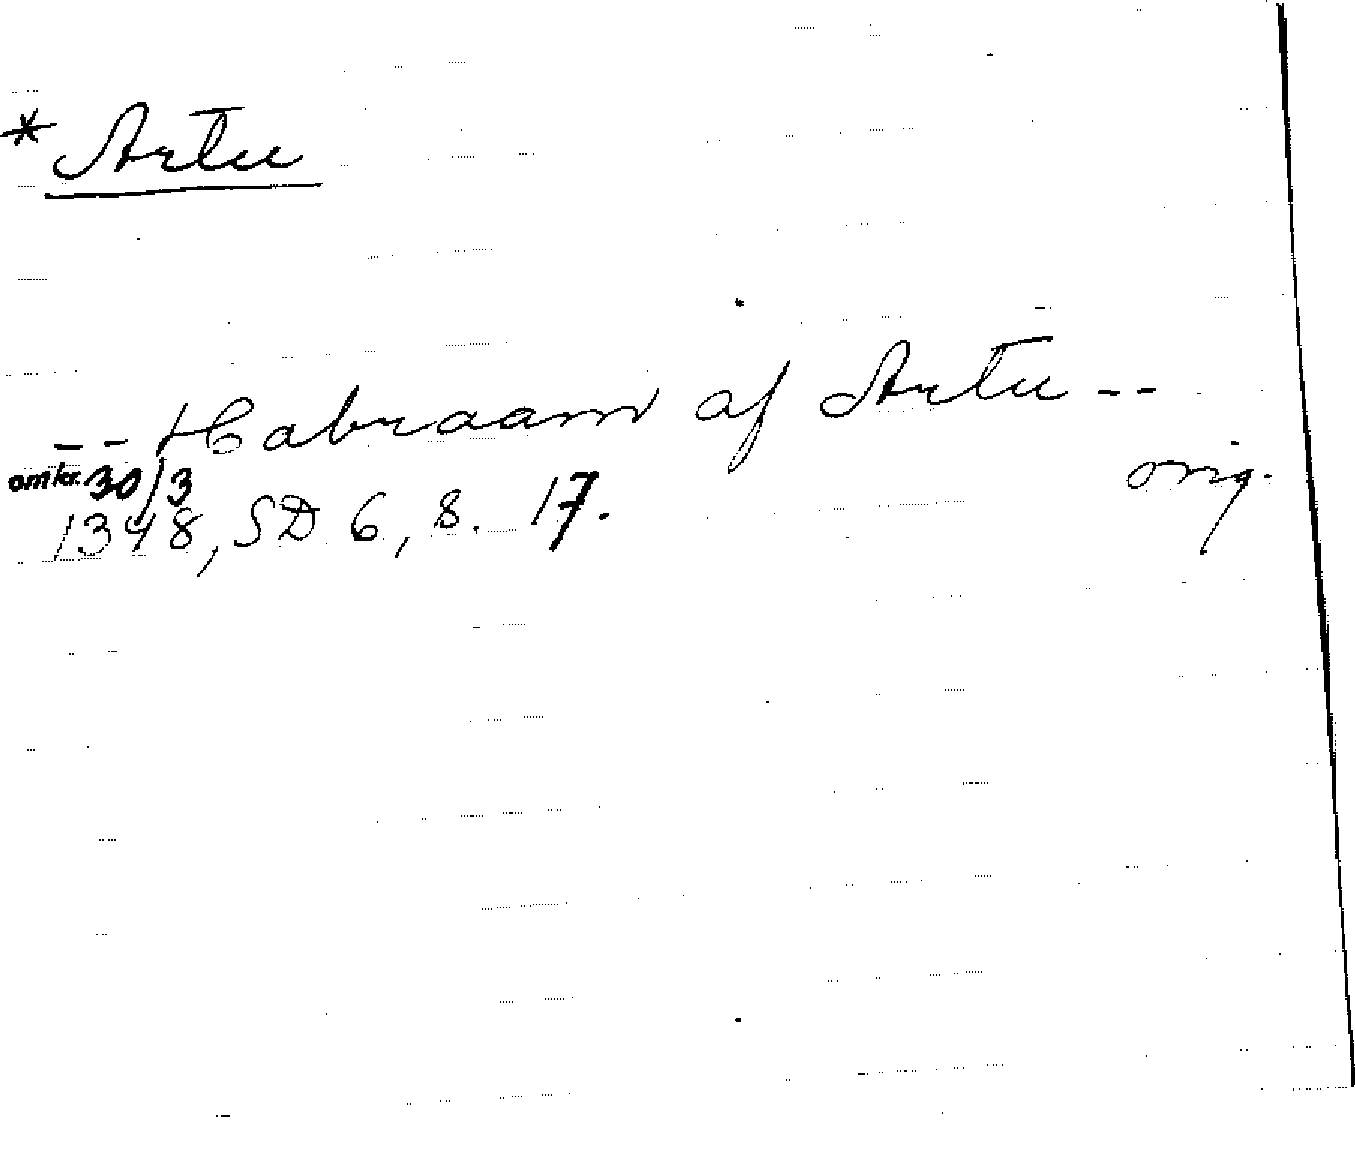 * Artu
-- Habraam af Artu --
orig.
omkr. 30/3
1348, SD 6, s. 17.